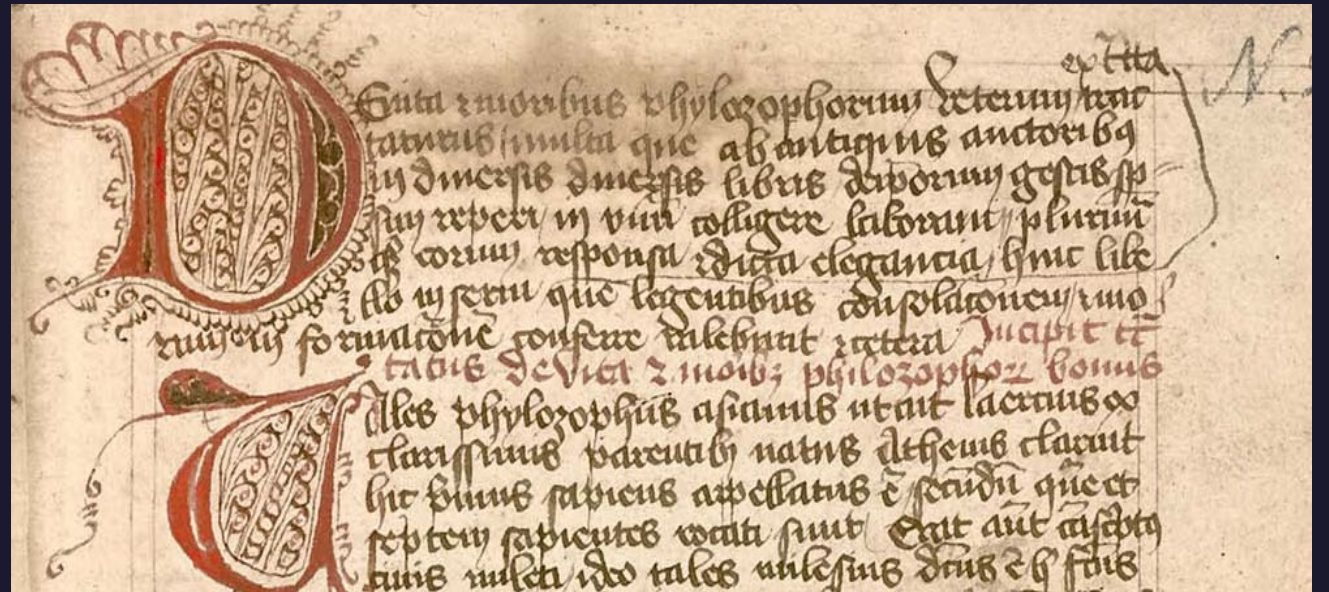 ex̄tita N.
De vita ⁊ moribus phylozophorum veterum trac
taturus / multa que ab antiquis auctoribꝯ
in diuersis diuersis libris de ipsorum gestis sp̄
sim reperi / in vnū colligere laboraui / plurimū
qꝫ eorum responsa ⁊ dicta elegancia / huic libe
llo inserui que legentibus consolac̄onem ⁊ mo
rum in formac̄onē conferre valebunt ⁊cetera Incipit tr̄
tatus de vita ⁊ moribꝫ philozophorꝝ bonus
Tales phylozophus asianus ut ait laercius ex
clarissimis parentibꝫ natus Athenis claruit
hic primus sapiens appellatus ē secundū quē et
septem sapientes vocati sunt / Erat aūt asc̄ptꝯ
ciuis mileti / ideo tales milesius dc̄us ē